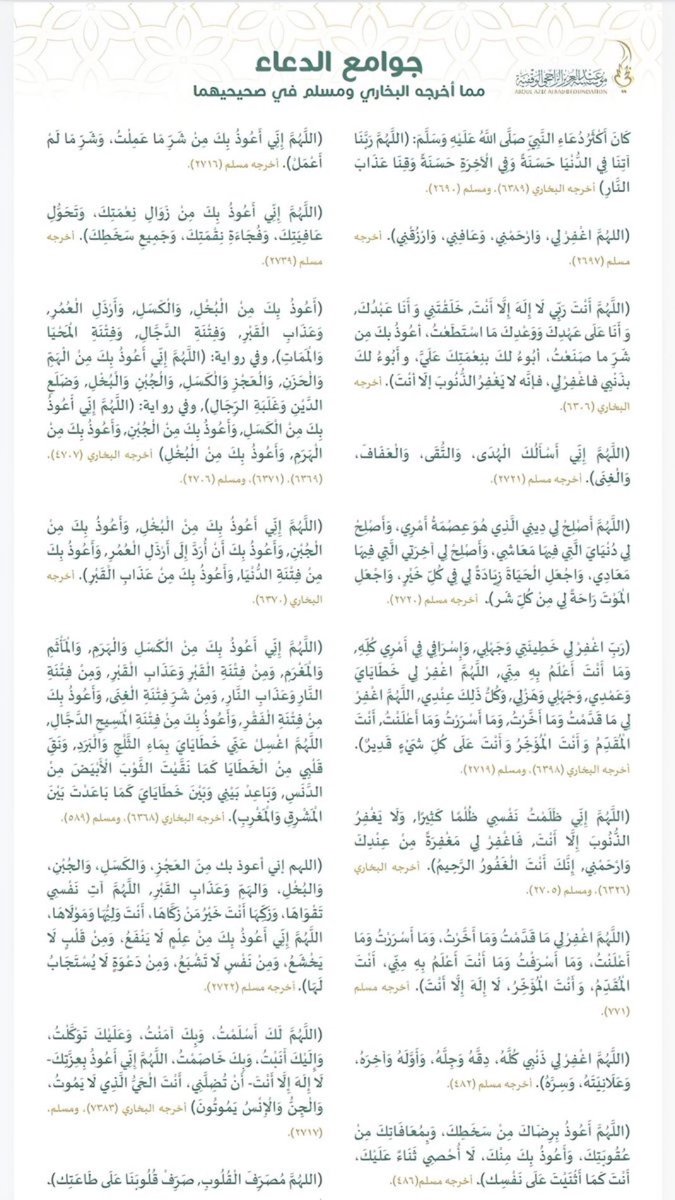 جوامع الدعاء
مما أخرجه البخاري ومسلم في صحيحيهما
مؤسسة عبدالعزيز الراجحي الوقفية
ABDUL AZIZ ALRAJHI FOUNDATION
كَانَ أَكْثَرُ دُعَاءِ النَّبِيِّ صَلَّى اللهُ عَلَيْهِ وَسَلَّمَ: (اللَّهُمَّ رَبَّنَا
آتِنَا فِي الدُّنْيَا حَسَنَةً وَفِي الْآخِرَةِ حَسَنَةً وَقِنَا عَذَابَ
النَّارِ) أخرجه البخاري (٦٣٨٩)، ومسلم (٢٦٩٠).
(اللهُمَّ اغْفِرْ لِي، وَارْحَمْنِي، وَعَافِنِي، وَارْزُقْنِي). أخرجه
مسلم (٢٦٩٧).
(اللَّهُمَّ أَنْتَ رَبِّي لَا إِلَهَ إِلَّا أَنْتَ, خَلَقْتَنِي وَأَنَا عَبْدُكَ,
وَأَنَا عَلَى عَهْدِكَ وَوَعْدِكَ مَا اسْتَطَعْتُ، أَعُوذُ بكَ مِن
شَرِّ ما صَنَعْتُ، أبُوءُ لكَ بنِعْمَتِكَ عَلَيَّ، وأَبُوءُ لكَ
بذَنْبِي فاغْفِرْ لِي، فإنَّه لا يَغْفِرُ الذُّنُوبَ إلَّا أنْتَ). أخرجه
البخاري (٦٣٠٦).
(اللهُمَّ إِنِّي أَسْأَلُكَ الْهُدَى، وَالتُّقَى، وَالْعَفَافَ،
وَالْغِنَى). أخرجه مسلم (٢٧٢١).
(اللَّهُمَّ أَصْلِحْ لِي دِينِي الَّذِي هُوَ عِصْمَةُ أَمْرِي، وَأَصْلِحْ
لِي دُنْيَايَ الَّتِي فِيهَا مَعَاشِي، وَأَصْلِحْ لِي آخِرَتِي الَّتِي فِيهَا
مَعَادِي، وَاجْعَلِ الْحَيَاةَ زِيَادَةً لِي فِي كُلِّ خَيْرٍ، وَاجْعَلِ
الْمَوْتَ رَاحَةً لِي مِنْ كُلِّ شَر). أخرجه مسلم (٢٧٢٠).
(رَبِّ اغْفِرْ لِي خَطِيئَتِي وَجَهْلِي, وَإِسْرَافِي فِي أَمْرِي كُلِّهِ,
وَمَا أَنْتَ أَعْلَمُ بِهِ مِنِّي, اللَّهُمَّ اغْفِرْ لِي خَطَايَايَ
وَعَمْدِي, وَجَهْلِي وَهَزْلِي, وَكُلُّ ذَلِكَ عِنْدِي, اللَّهُمَّ اغْفِرْ
لِي مَا قَدَّمْتُ وَمَا أَخَّرْتُ, وَمَا أَسْرَرْتُ وَمَا أَعْلَنْتُ, أَنْتَ
الْمُقَدِّمُ وَأَنْتَ الْمُؤَخِّرُ وَأَنْتَ عَلَى كُلِّ شَيْءٍ قَدِيرٌ).
أخرجه البخاري (٦٣٩٨)، ومسلم (٢٧١٩).
(اللَّهُمَّ إِنِّي ظَلَمْتُ نَفْسِي ظُلْمًا كَثِيرًا, وَلَا يَغْفِرُ
الذُّنُوبَ إِلَّا أَنْتَ, فَاغْفِرْ لِي مَغْفِرَةً مِنْ عِنْدِكَ
وَارْحَمْنِي, إِنَّكَ أَنْتَ الْغَفُورُ الرَّحِيمُ). أخرجه البخاري
(٦٣٢٦)، ومسلم (٢٧٠٥).
(اللَّهُمَّ اغْفِرْ لِي مَا قَدَّمْتُ وَمَا أَخَّرْتُ، وَمَا أَسْرَرْتُ وَمَا
أَعْلَنْتُ، وَمَا أَسْرَفْتُ وَمَا أَنْتَ أَعْلَمُ بِهِ مِنِّي، أَنْتَ
الْمُقَدِّمُ، وَأَنْتَ الْمُؤَخِّرُ، لَا إِلَهَ إِلَّا أَنْتَ). أخرجه مسلم
(٧٧١).
(اللَّهُمَّ اغْفِرْ لِي ذَنْبِي كُلَّهُ، دِقَّهُ وَجِلَّهُ، وَأَوَّلَهُ وَآخِرَهُ،
وَعَلَانِيَتَهُ، وَسِرَّهُ). أخرجه مسلم (٤٨٢).
(اللَّهُمَّ أَعُوذُ بِرِضَاكَ مِنْ سَخَطِكَ، وَبِمُعَافَاتِكَ مِنْ
عُقُوبَتِكَ، وَأَعُوذُ بِكَ مِنْكَ، لَا أُحْصِي ثَنَاءً عَلَيْكَ،
أَنْتَ كَمَا أَثْنَيْتَ عَلَى نَفْسِكَ). أخرجه مسلم(٤٨٦)
(اللَّهُمَّ إِنِّي أَعُوذُ بِكَ مِنْ شَرِّ مَا عَمِلْتُ، وَشَرِّ مَا لَمْ
أَعْمَلْ). أخرجه مسلم (٢٧١٦).
(اللَّهُمَّ إِنِّي أَعُوذُ بِكَ مِنْ زَوَالِ نِعْمَتِكَ، وَتَحَوُّلِ
عَافِيَتِكَ، وَفُجَاءَةِ نِقْمَتِكَ، وَجَمِيعِ سَخَطِكَ). أخرجه
مسلم (٢٧٣٩).
(أَعُوذُ بِكَ مِنْ الْبُخْلِ, وَالْكَسَلِ, وَأَرْذَلِ الْعُمُرِ,
وَعَذَابِ الْقَبْرِ, وَفِتْنَةِ الدَّجَّالِ, وَفِتْنَةِ الْمَحْيَا
وَالْمَمَاتِ), وفي رواية: (اللَّهُمَّ إِنِّي أَعُوذُ بِكَ مِنْ الْهَمِّ
وَالْحَزَنِ, وَالْعَجْزِ وَالْكَسَلِ, وَالْجُبْنِ وَالْبُخْلِ, وَضَلَعِ
الدَّيْنِ وَغَلَبَةِ الرِّجَالِ), وفي رواية: (اللَّهُمَّ إِنِّي أَعُوذُ
بِكَ مِنْ الْكَسَلِ, وَأَعُوذُ بِكَ مِنْ الْجُبْنِ, وَأَعُوذُ بِكَ مِنْ
الْهَرَمِ, وَأَعُوذُ بِكَ مِنْ الْبُخْلِ) أخرجه البخاري (٤٧٠٧)،
(٦٣٦٩)، (٦٣٧١)، ومسلم (٢٧٠٦).
(اللَّهُمَّ إِنِّي أَعُوذُ بِكَ مِنْ الْبُخْلِ, وَأَعُوذُ بِكَ مِنْ
الْجُبْنِ, وَأَعُوذُ بِكَ أَنْ أُرَدَّ إِلَى أَرْذَلِ الْعُمُرِ, وَأَعُوذُ بِكَ
مِنْ فِتْنَةِ الدُّنْيَا, وَأَعُوذُ بِكَ مِنْ عَذَابِ الْقَبْرِ). أخرجه
البخاري (٦٣٧٠).
(اللَّهُمَّ إِنِّي أَعُوذُ بِكَ مِنْ الْكَسَلِ وَالْهَرَمِ, وَالْمَأْثَمِ
وَالْمَغْرَمِ, وَمِنْ فِتْنَةِ الْقَبْرِ وَعَذَابِ الْقَبْرِ, وَمِنْ فِتْنَةِ
النَّارِ وَعَذَابِ النَّارِ, وَمِنْ شَرِّ فِتْنَةِ الْغِنَى, وَأَعُوذُ بِكَ
مِنْ فِتْنَةِ الْفَقْرِ, وَأَعُوذُ بِكَ مِنْ فِتْنَةِ الْمَسِيحِ الدَّجَّالِ,
اللَّهُمَّ اغْسِلْ عَنِّي خَطَايَايَ بِمَاءِ الثَّلْجِ وَالْبَرَدِ, وَنَقِّ
قَلْبِي مِنْ الْخَطَايَا كَمَا نَقَّيْتَ الثَّوْبَ الْأَبْيَضَ مِنْ
الدَّنَسِ, وَبَاعِدْ بَيْنِي وَبَيْنَ خَطَايَايَ كَمَا بَاعَدْتَ بَيْنَ
الْمَشْرِقِ وَالْمَغْرِبِ). أخرجه البخاري (٦٣٦٨)، ومسلم (٥٨٩).
(اللهم إني أعوذ بك مِنَ العَجْزِ، وَالكَسَلِ، وَالجُبْنِ،
وَالبُخْلِ، وَالهَمِّ وَعَذَابِ القَبْرِ, اللَّهُمَّ آتِ نَفْسِي
تَقْوَاهَا، وَزَكِّهَا أَنْتَ خَيْرُ مَنْ زَكَّاهَا، أَنْتَ وَلِيُّهَا وَمَوْلَاهَا،
اللَّهُمَّ إِنِّي أَعُوذُ بِكَ مِنْ عِلْمٍ لَا يَنْفَعُ، وَمِنْ قَلْبٍ لَا
يَخْشَعُ، وَمِنْ نَفْسٍ لَا تَشْبَعُ، وَمِنْ دَعْوَةٍ لَا يُسْتَجَابُ
لَهَا). أخرجه مسلم (٢٧٢٢).
(اللَّهُمَّ لَكَ أَسْلَمْتُ، وَبِكَ آمَنْتُ، وَعَلَيْكَ تَوَكَّلْتُ،
وَإِلَيْكَ أَنَبْتُ، وَبِكَ خَاصَمْتُ، اللَّهُمَّ إِنِّي أَعُوذُ بِعِزَّتِكَ-
لَا إِلَهَ إِلَّا أَنْتَ- أَنْ تُضِلَّنِي، أَنْتَ الْحَيُّ الَّذِي لَا يَمُوتُ،
وَالْجِنُّ وَالْإِنْسُ يَمُوتُونَ) أخرجه البخاري (٧٣٨٣)، ومسلم.
(٢٧١٧).
(اللهُمَّ مُصَرِّفَ الْقُلُوبِ, صَرِّفْ قُلُوبَنَا عَلَى طَاعَتِكَ).